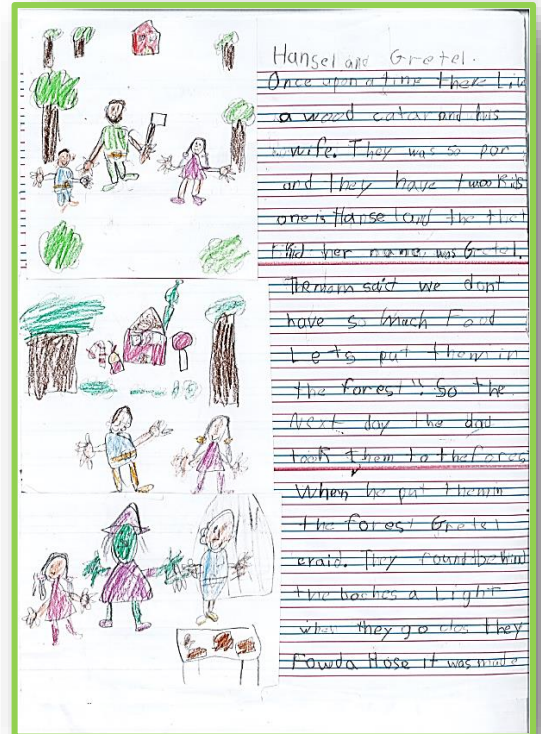 Hansel and Gretel.
Once upon a time there Liv
a wood catar and his
wife. They was so por
and they have twoo Kids
one is Hansel and the
Kid her name was Gretel.
The mam said we dont
have so much Food
Lets put them in
the forest". So the
Next day the dad
took them to the fores
When he put them in
the forest Gretel
craid. They found behind
the boches a Light
when they go clos they
Fowda Hose it was made